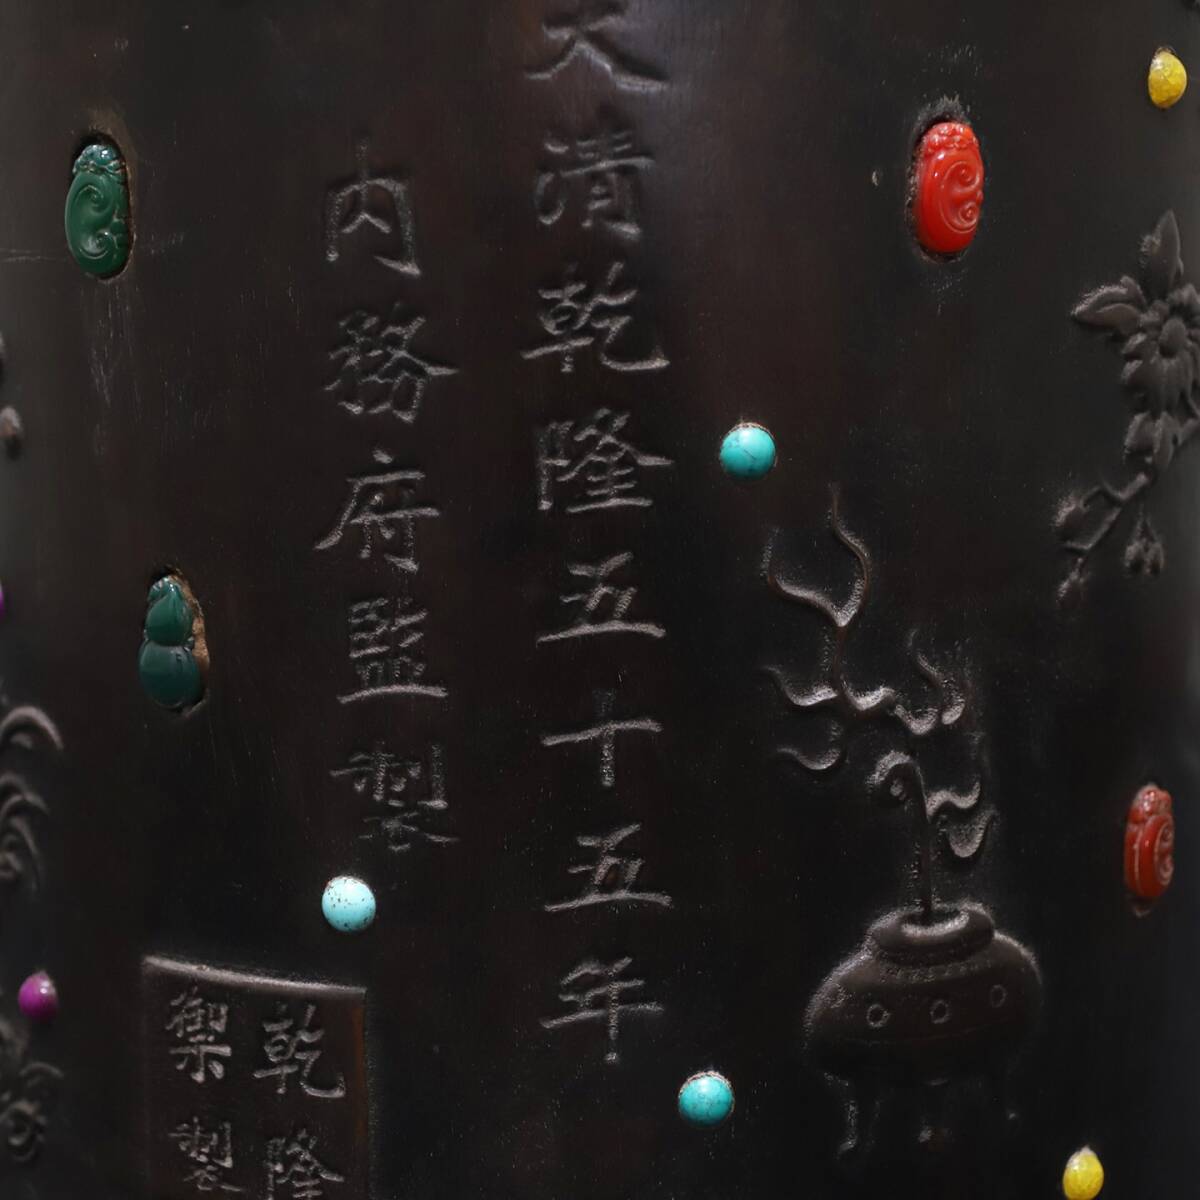 大清乾隆五十五年
内務府監製
乾隆
御製